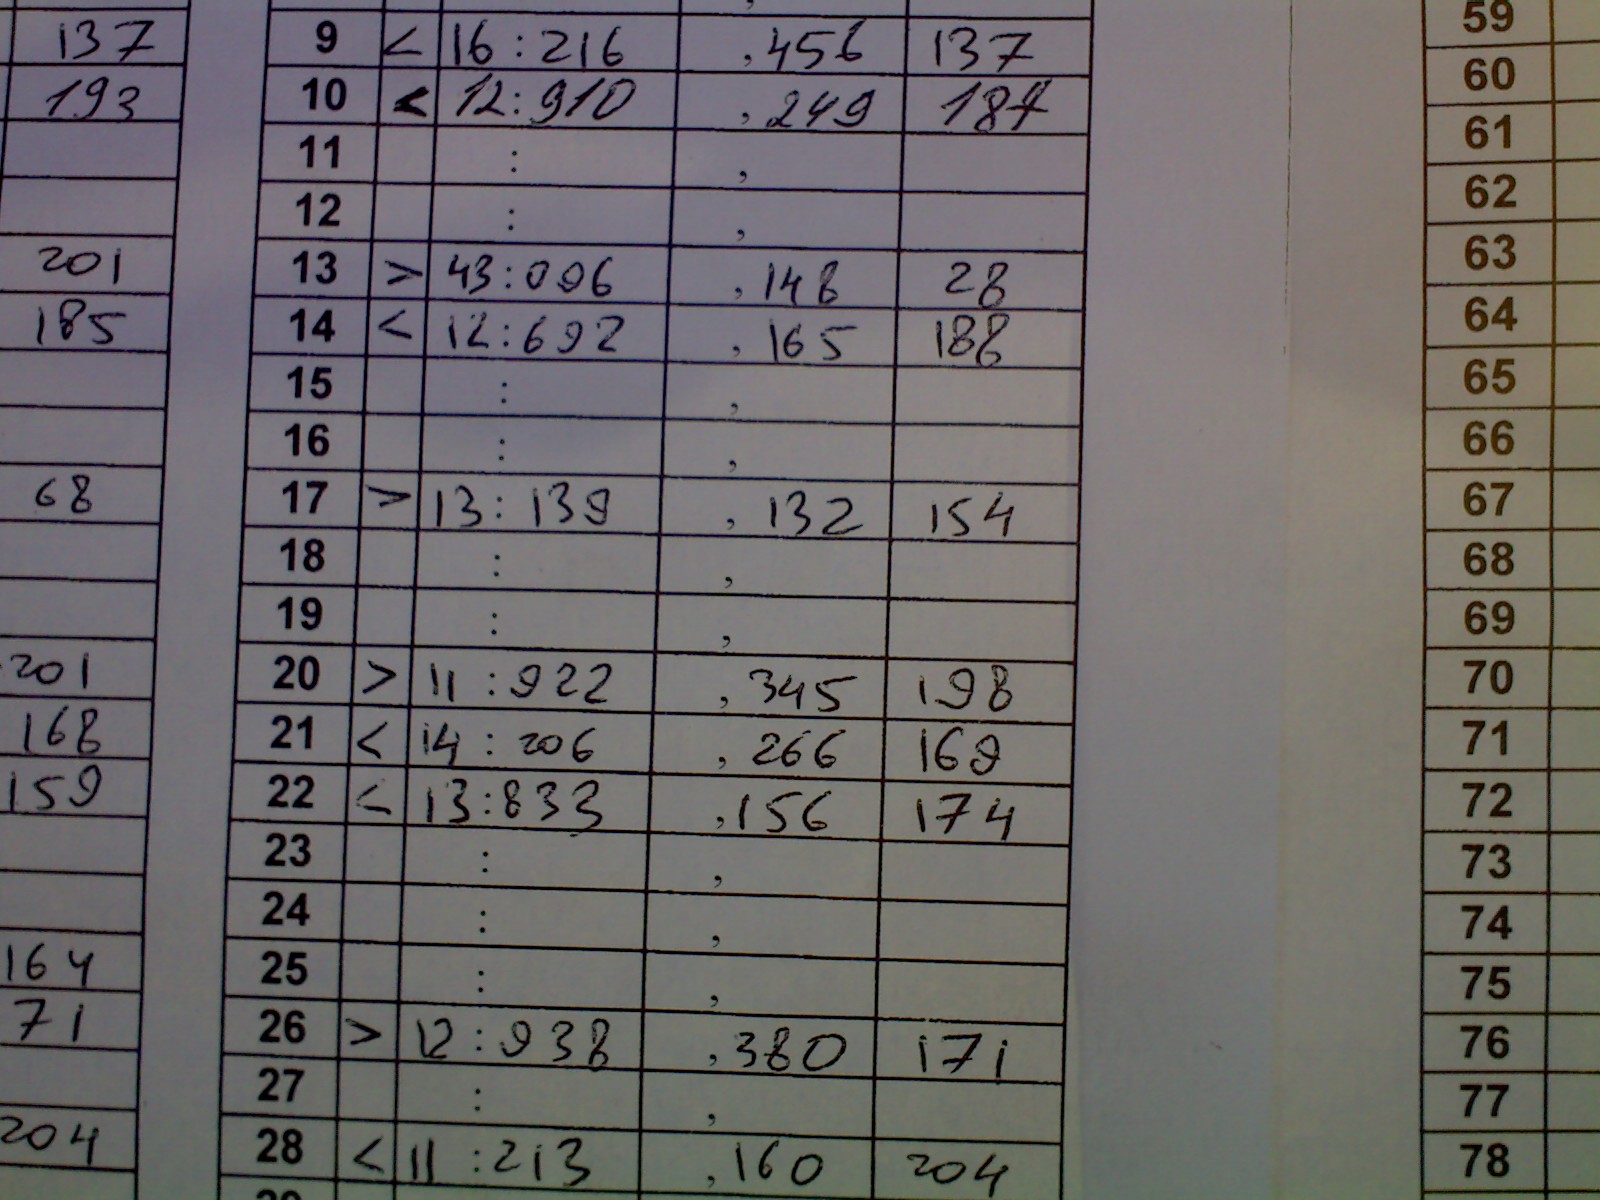 137 9 < 16:216 ,456 137 59
193 10 < 12:910 ,249 187 60
11 : , 61
12 : , 62
201 13 > 43:096 ,148 28 63
185 14 < 12:692 ,165 188 64
15 : , 65
16 : , 66
68 17 > 13:139 ,132 154 67
18 : , 68
19 : , 69
201 20 > 11:922 ,345 198 70
168 21 < 14:206 ,266 169 71
159 22 < 13:833 ,156 174 72
23 : , 73
24 : , 74
164 25 : , 75
71 26 > 12:938 ,380 171 76
27 : , 77
204 28 < 11:213 ,160 204 78